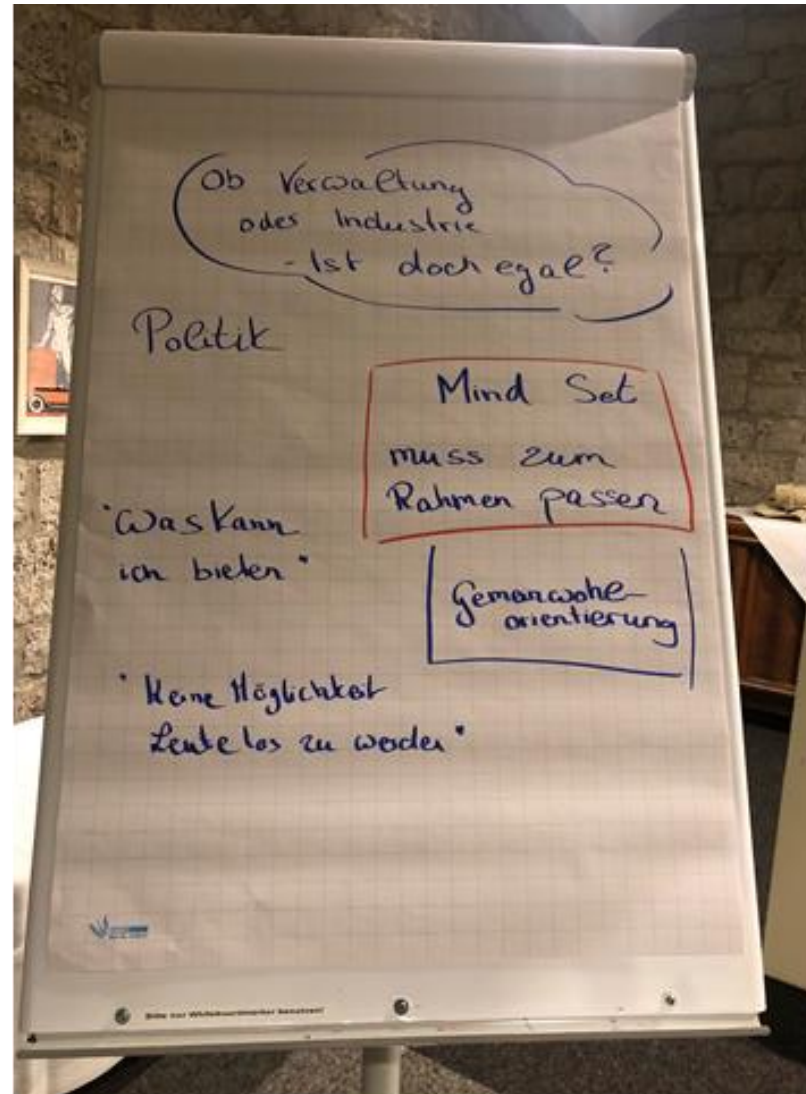 Ob Verwaltung
oder Industrie
- Ist doch egal?
Politik
Mind Set
muss zum
Rahmen passen
"Was kann
ich bieten"
Gemeinwohl-
orientierung
"Keine Möglichkeit
Leute los zu werden"
Bitte nur Whiteboardmarker benutzen!